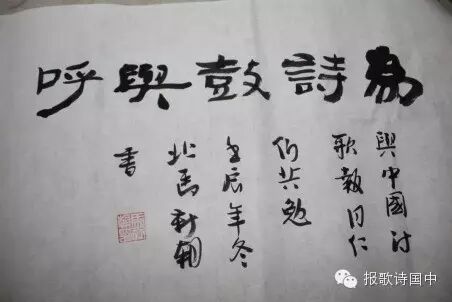 為詩鼓與呼
與中國詩
歌報同仁
們共勉
壬辰年冬
馬新朝
書
报歌诗国中